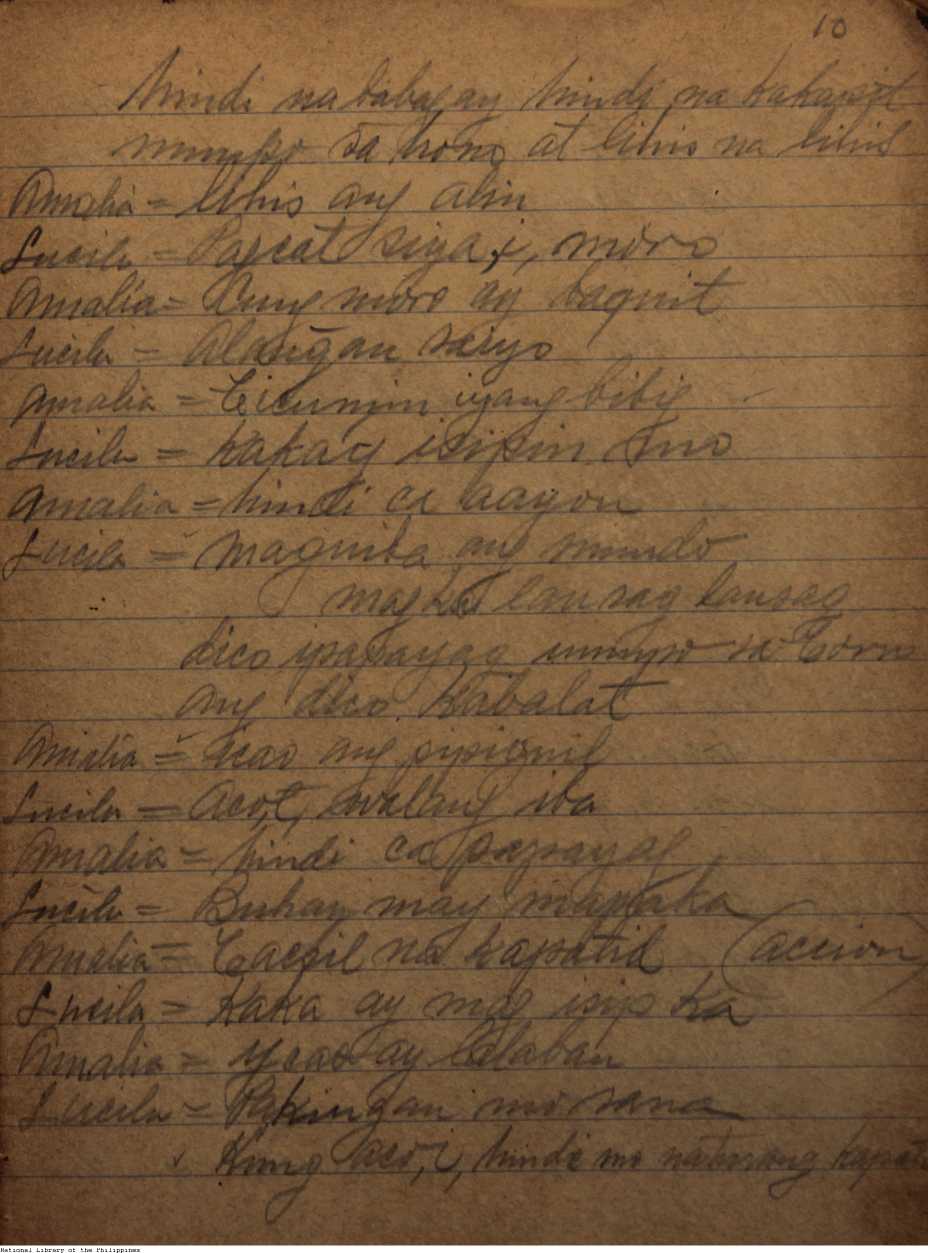 10
hindi na babagay hindi na kakapit
numpo sa trono at lihis na lihis
Amalia = lihis ang alin
Lucila = Pagcat siya,i, moro
Amalia = Kung moro ay baquit
Lucila = Alañgan saiyo
Amalia = Ticumin iyang bibig
Lucila = Kakay isipin mo
Amalia = hindi ca aayon
Lucila = maguiba ang mundo
mag lansag lansag
dico ipapayag umupo sa Corona
ang dico kabalat
Amalia = icao ang pipiguil
Lucila = Aco,t, walang iba
Amalia = hindi ca papayag
Lucila = Buhay may mapaka
Amalia = Tacsil na kapatid (accion)
Lucila = Kaka ay mag isip ka
Amalia = ycao ay lalaban
Lucila = Pakingan mo sana
Kung aco,i, hindi mo naturang kapatid
National Library of the Philippines